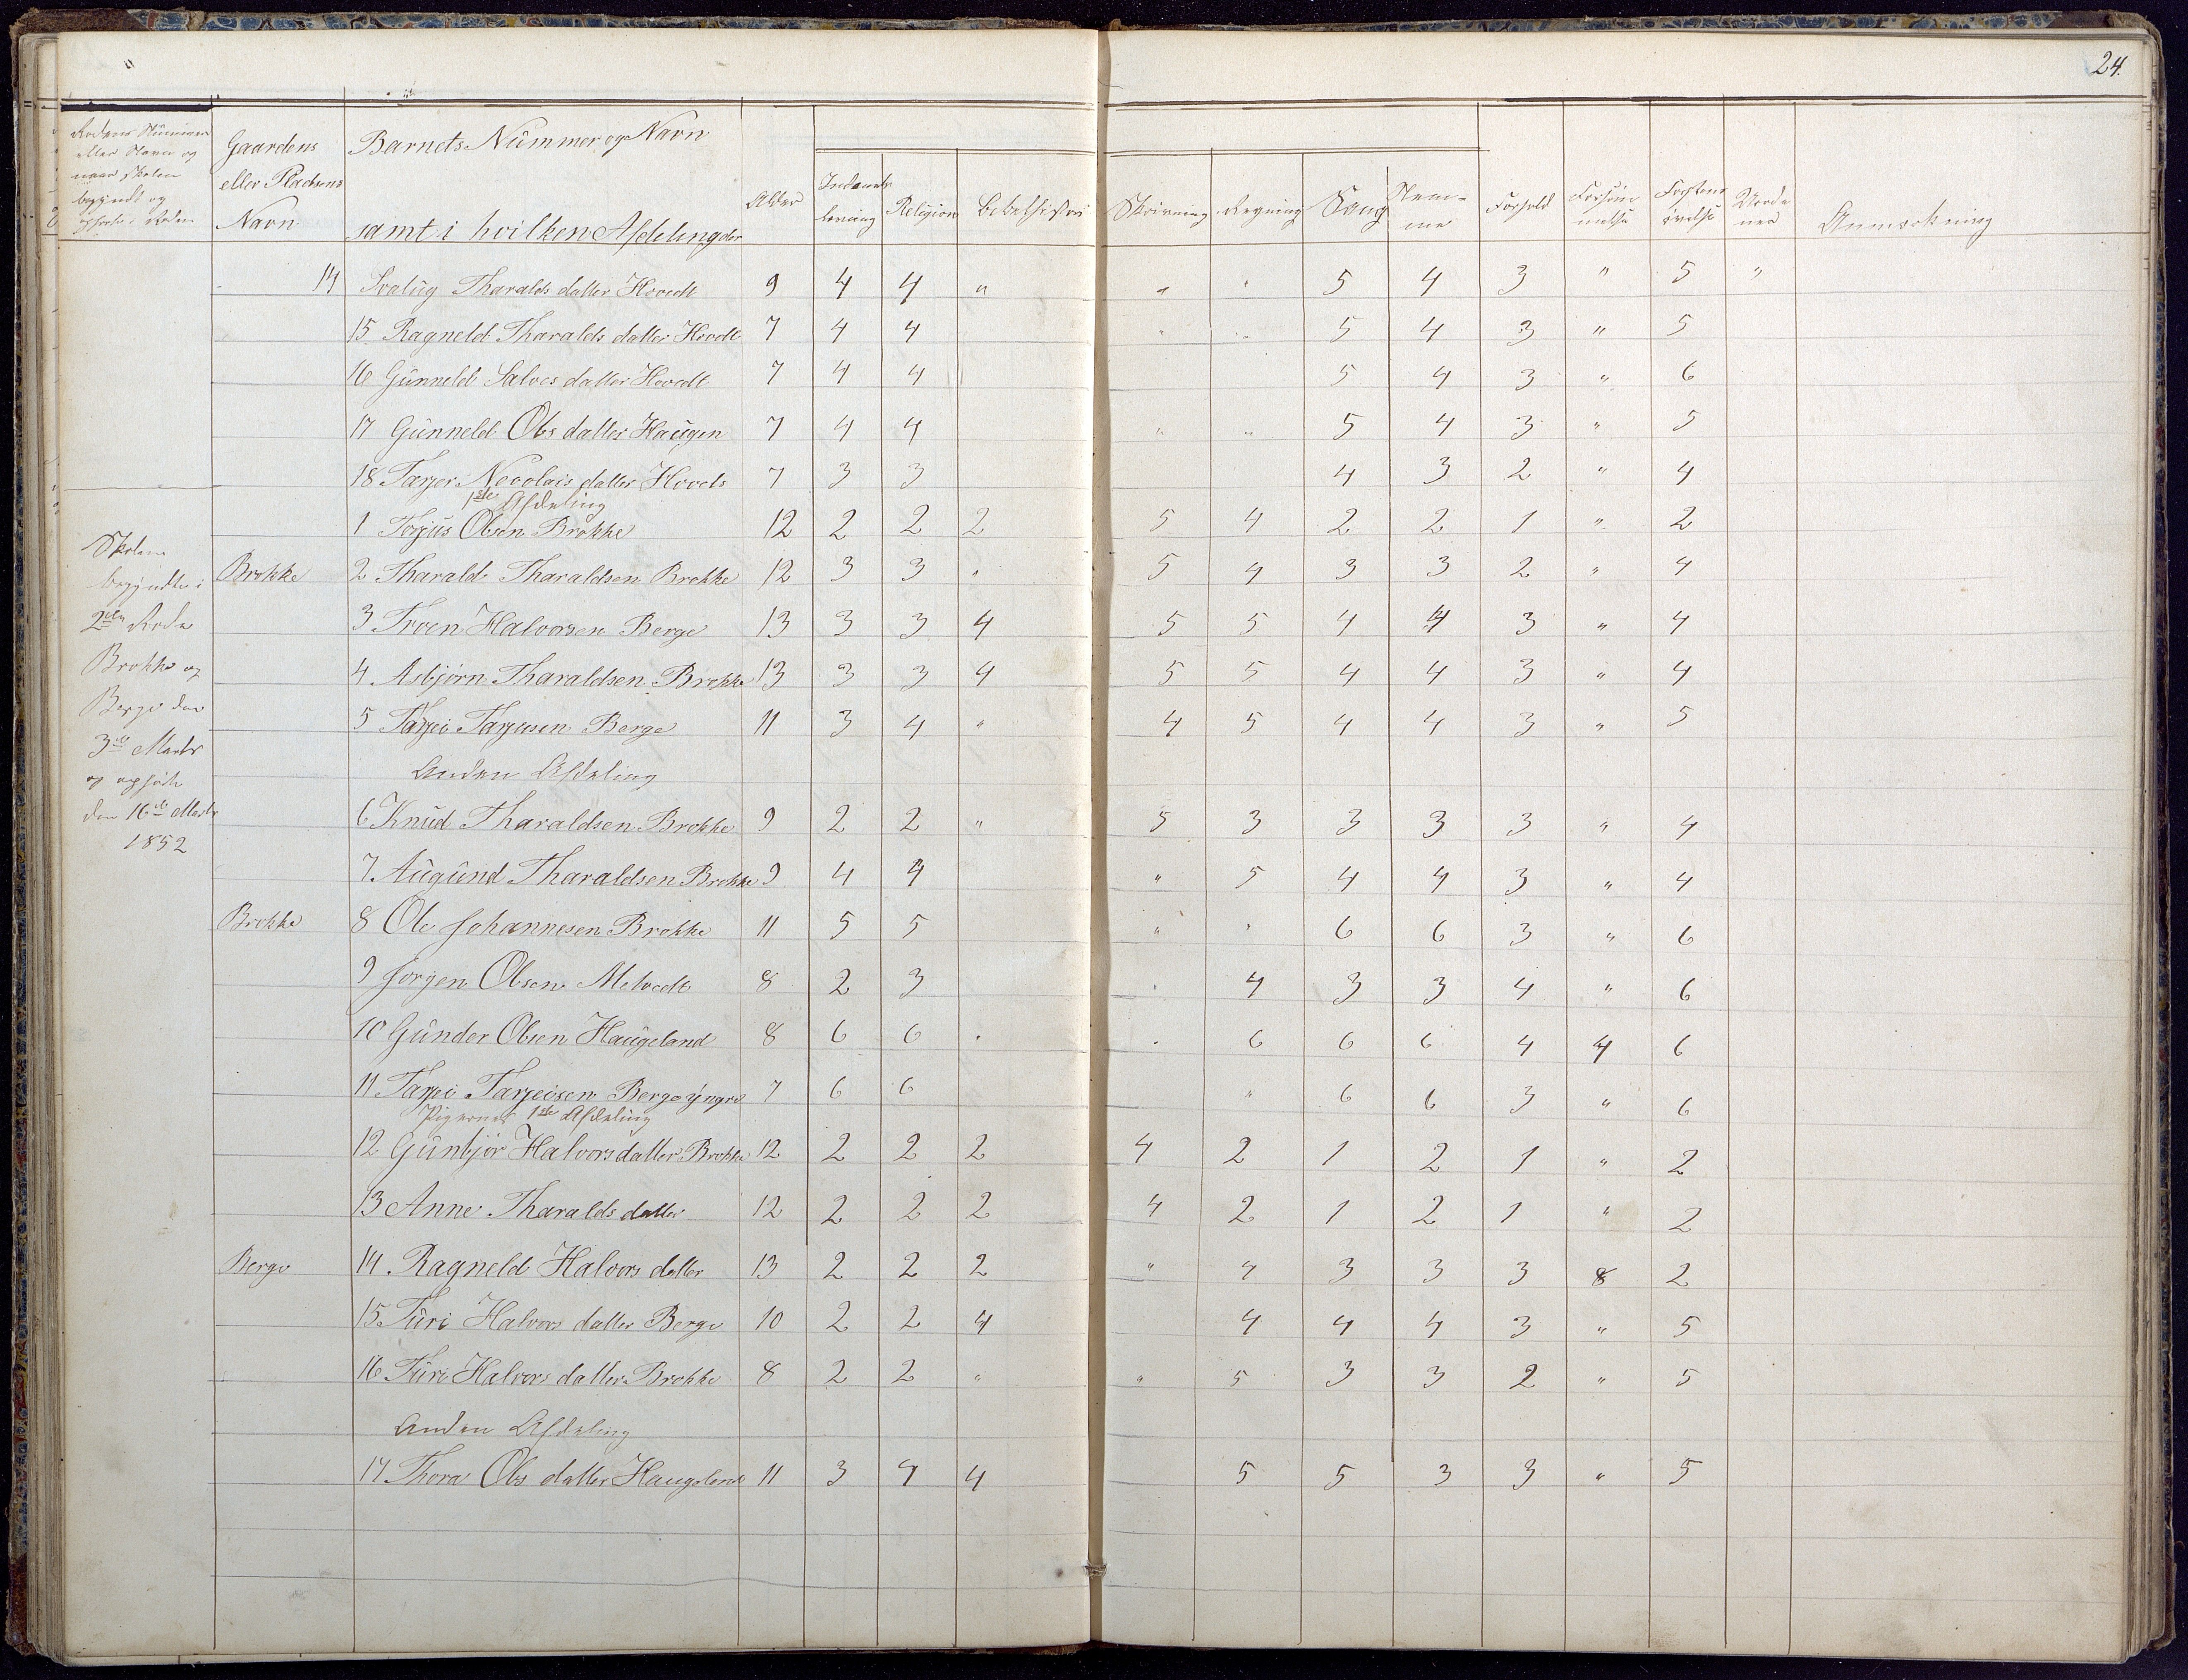 24.
Rodens Nummer eller Navn og naar Skolen begyndt og ophørte i Roden | Gaardens eller Pladsens Navn | Barnets Nummer og Navn samt i hvilken Afdeling der | Alder | Indenads læsning | Religion | Bibelhistori | Skrivning | Regning | Sang | Nem= me | Forhold | Forsøm melse | Forstans øvelse | Anmærkning
14 Svalug Tharalds datter Hovedt 9 4 4 " " " 5 4 3 " 5 "
15 Ragneld Tharalds datter Hovdt 7 4 4 " " 5 4 3 " 5
16 Gunneld Salves datter Hovedt 7 4 4 5 4 3 " 6
17 Gunneld Ols datter Haugen 7 4 4 " " 5 4 3 " 5
18 Tarjer Necolais datter Hovets 7 3 3 4 3 2 " 4
1ste Afdeling
1 Terjus Olsen Brokke 12 2 2 2 5 4 2 2 1 " 2
Brokke 2 Tharald Tharaldsen Brokke 12 3 3 " 5 4 3 3 2 " 4
3 Troen Halvorsen Berge 13 3 3 4 5 5 4 4 3 " 4
4 Asbjørn Tharaldsen Brokke 13 3 3 4 5 5 4 4 3 " 4
5 Tarjei Tarjusen Berge 11 3 4 " 4 5 4 4 3 " 5
Anden Afdeling
6 Knud Tharaldsen Brokke 9 2 2 " 5 3 3 3 3 " 4
7 Augund Tharaldsen Brokke 9 4 4 " 5 4 4 3 " 4
Brokke 8 Ole Johannesen Brokke 11 5 5 " " 6 6 3 " 6
9 Jorgen Olsen Melvedt 8 2 3 " 4 3 3 4 " 6
10 Gunder Olsen Haugeland 8 6 6 " " 6 6 6 4 4 6
11 Tarjei Tarjeisen Berge yngre 7 6 6 " 6 6 3 " 6
Pigernes 1ste Afdeling
12 Gunbjør Halvors datter Brokke 12 2 2 2 4 2 1 2 1 " 2
13 Anne Tharalds datter 12 2 2 2 4 2 1 2 1 " 2
Berge 14 Ragneld Halvors datter 13 2 2 2 " 4 3 3 3 8 2
15 Turi Halvors datter Berge 10 2 2 4 4 4 4 3 " 5
16 Turi Halvors datter Brokke 8 2 2 " " 5 3 3 2 " 5
Anden Afdeling
17 Thora Ols datter Haugeland 11 3 4 4 5 5 3 3 " 5
Skolen
begyndte i
2den Rode
Brokke og
Berge den
3de Marts
og ophørte
den 16de Marts
1852